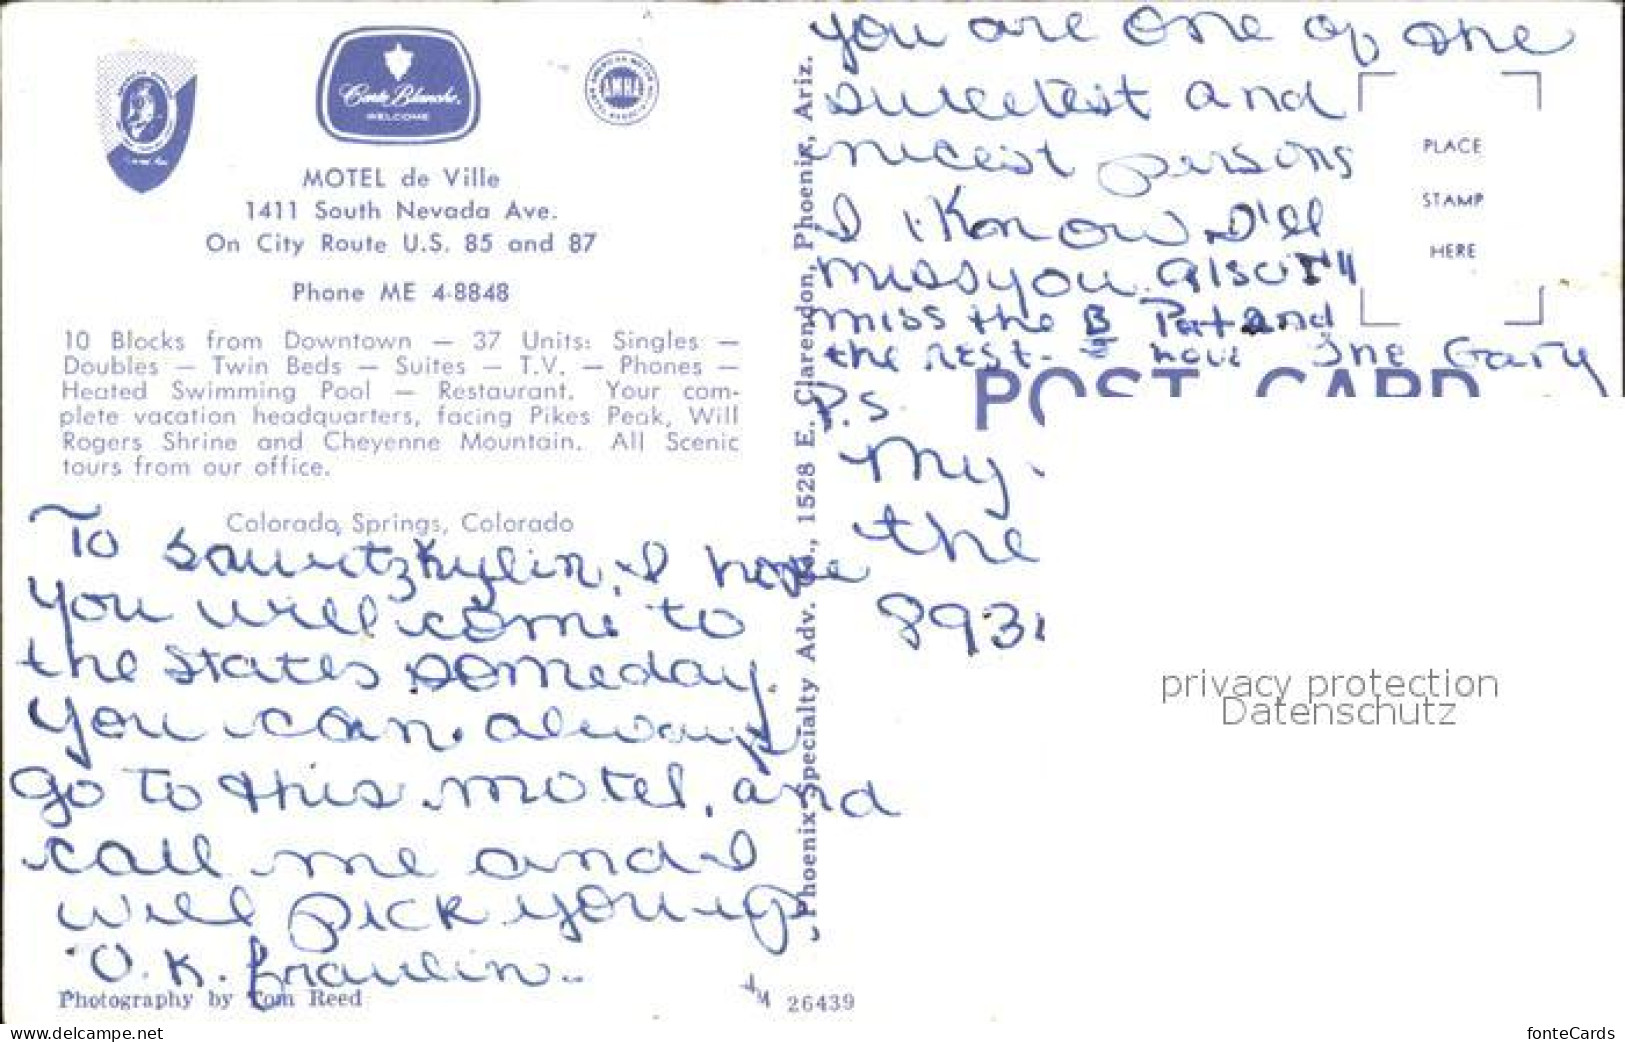 Carte Blanche
WELCOME
AMHA
MOTEL de Ville
1411 South Nevada Ave.
On City Route U.S. 85 and 87
Phone ME 4-8848
10 Blocks from Downtown — 37 Units: Singles —
Doubles — Twin Beds — Suites — T.V. — Phones —
Heated Swimming Pool — Restaurant. Your com-
plete vacation headquarters, facing Pikes Peak, Will
Rogers Shrine and Cheyenne Mountain. All Scenic
tours from our office.
Colorado Springs, Colorado
To I hope
you will come to
the States someday.
You can always
go to this motel, and
call me and I
will pick you up
O.K. fraulin..
Photography by Tom Reed
26439
Phoenix Specialty Adv. Co., 1528 E. Clarendon, Phoenix, Ariz.
you are one of the
sweetest and
nicest persons
I know I'll
miss you also I'll
miss the B Pat and
the rest. Gary
P.S.
My
the
8931
POST CARD
PLACE
STAMP
HERE
privacy protection
Datenschutz
www.delcampe.net
fonteCards